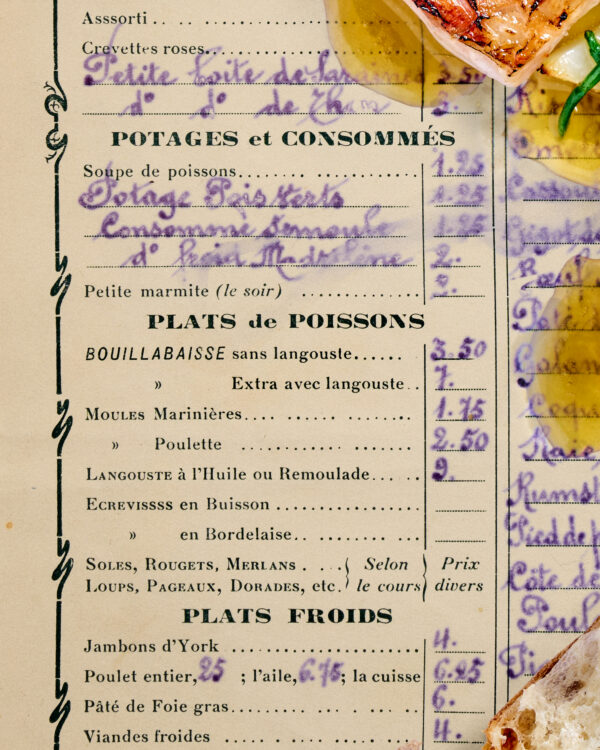 Asssorti
Crevettes roses
Petite boîte de Sardines 3.50
d° d° de Thon 3.
POTAGES et CONSOMMÉS
Soupe de poissons 1.25
Potage Pois Verts 1.25
Consommé Semoule 1.25
d° froid Madrilène 2.
Petite marmite (le soir) 2.
PLATS de POISSONS
BOUILLABAISSE sans langouste 3.50
» Extra avec langouste 7.
MOULES Marinières 1.75
» Poulette 2.50
LANGOUSTE à l'Huile ou Remoulade 9.
ECREVISSSS en Buisson
» en Bordelaise
SOLES, ROUGETS, MERLANS Selon Prix
LOUPS, PAGEAUX, DORADES, etc. le cours divers
PLATS FROIDS
Jambons d'York 4.
Poulet entier, 25 ; l'aile, 6.75; la cuisse 6.25
Pâté de Foie gras 6.
Viandes froides 4.
Gigot d
Rœuf
Raie
Rumst
Pied de p
Côte de
Poul